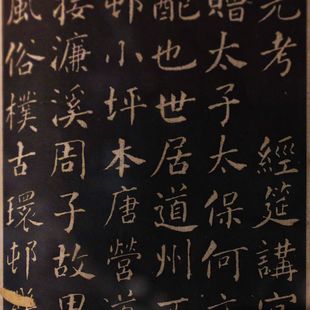 元考 經筵講官
贈太子太保何
配也世居道州
邨小坪本唐營道
接濂溪周子故里
風俗樸古環邨